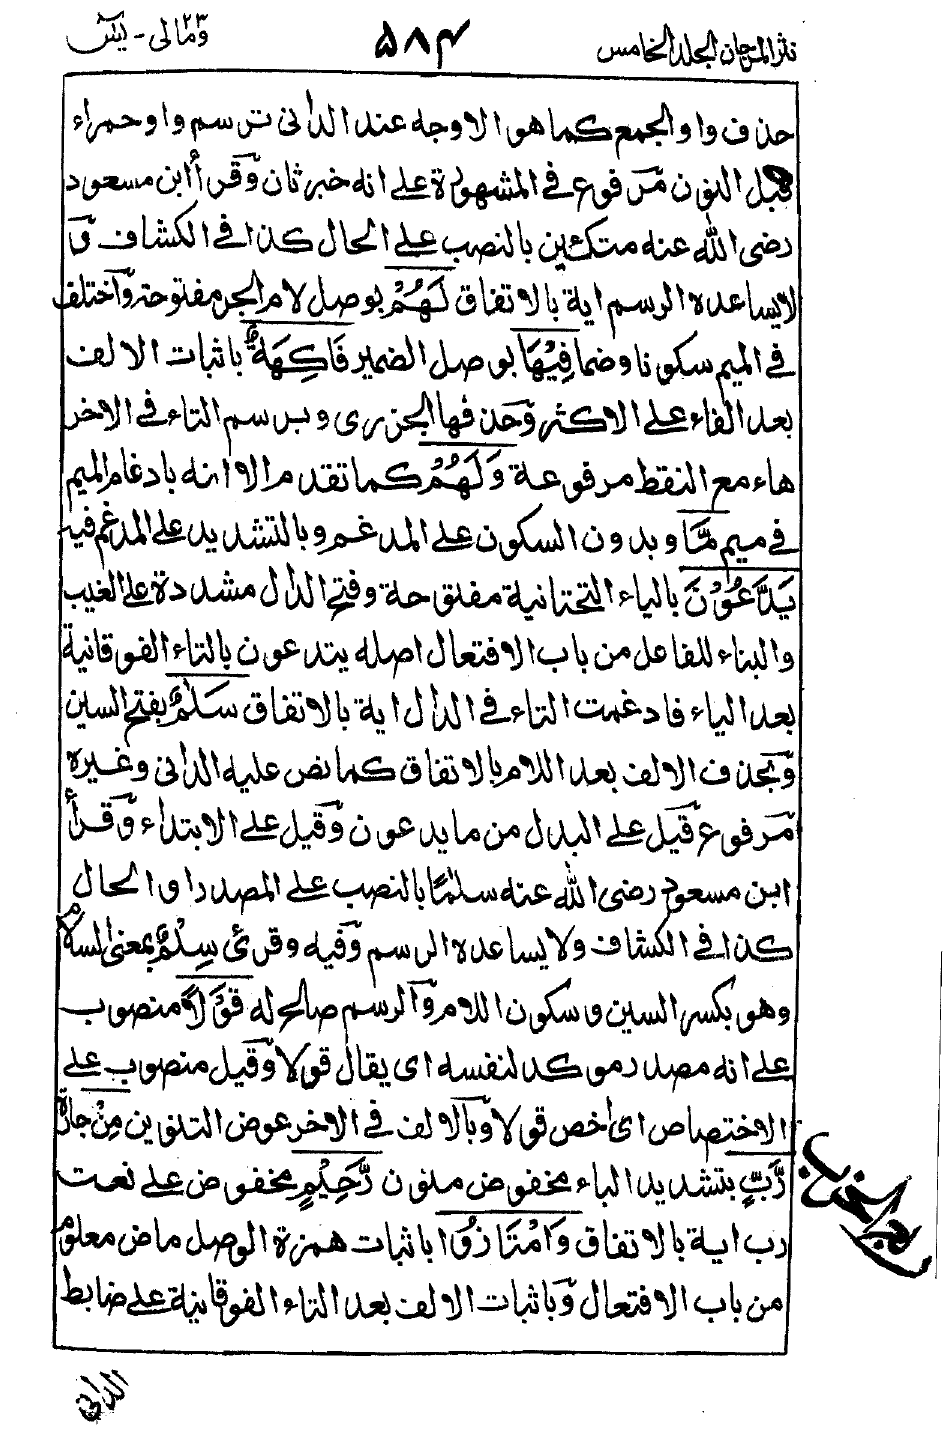 نثر المرجان الجلد الخامس
۵۸۴
ومالى ٢٣ - يٰسٓ
حذف واو الجمع كما هو الاوجه عند الدانى ترسم واو حمراء
قبل النون مرفوع فى المشهورة على انه خبر ثان وقرأ ابن مسعود
رضى الله عنه متكئين بالنصب على الحال كذا فى الكشاف و
لا يساعده الرسم اية بالاتفاق لَهُمْ بوصل لام الجر مفتوحة واختلف
فى الميم سكونا وضما فِيْهَا بوصل الضمير فَاكِهَةٌ باثبات الالف
بعد الفاء على الاكثر وحذفها الجزرى وبرسم التاء فى الاخر
هاء مع النقط مرفوعة وَلَهُمْ كما تقدم الا انه بادغام الميم
فى ميم مَّا وبدون السكون على المدغم وبالتشديد على المدغم فيه
يَدَّعُوْنَ بالياء التحتانية مفتوحة وفتح الدال مشددة على الغيب
والبناء للفاعل من باب الافتعال اصله يتدعون بالتاء الفوقانية
بعد الياء فادغمت التاء فى الدال اية بالاتفاق سَلٰمٌ بفتح السين
وبحذف الالف بعد اللام بالاتفاق كما نص عليه الدانى وغيره
مرفوع قيل على البدل من ما يدعون وقيل على الابتداء وقرأ
ابن مسعود رضى الله عنه سلٰمًا بالنصب على المصدر او الحال
كذا فى الكشاف ولا يساعده الرسم وفيه وقرئ سِلْمٌ بمعنى السلام
وهو بكسر السين وسكون اللام والرسم صالح له قَوْلًا منصوب
على انه مصدر موكد لنفسه اى يقال قولا وقيل منصوب على
الاختصاص اى اخص قولا وبالالف فى الاخر عوض التنوين مِنْ جارة
رَّبٍّ بتشديد الباء مخفوض منون رَّحِيْمٍ مخفوض على نعت
رب اية بالاتفاق وَامْتَازُوا باثبات همزة الوصل ماض معلوم
من باب الافتعال وباثبات الالف بعد التاء الفوقانية على ضابط
الدانى